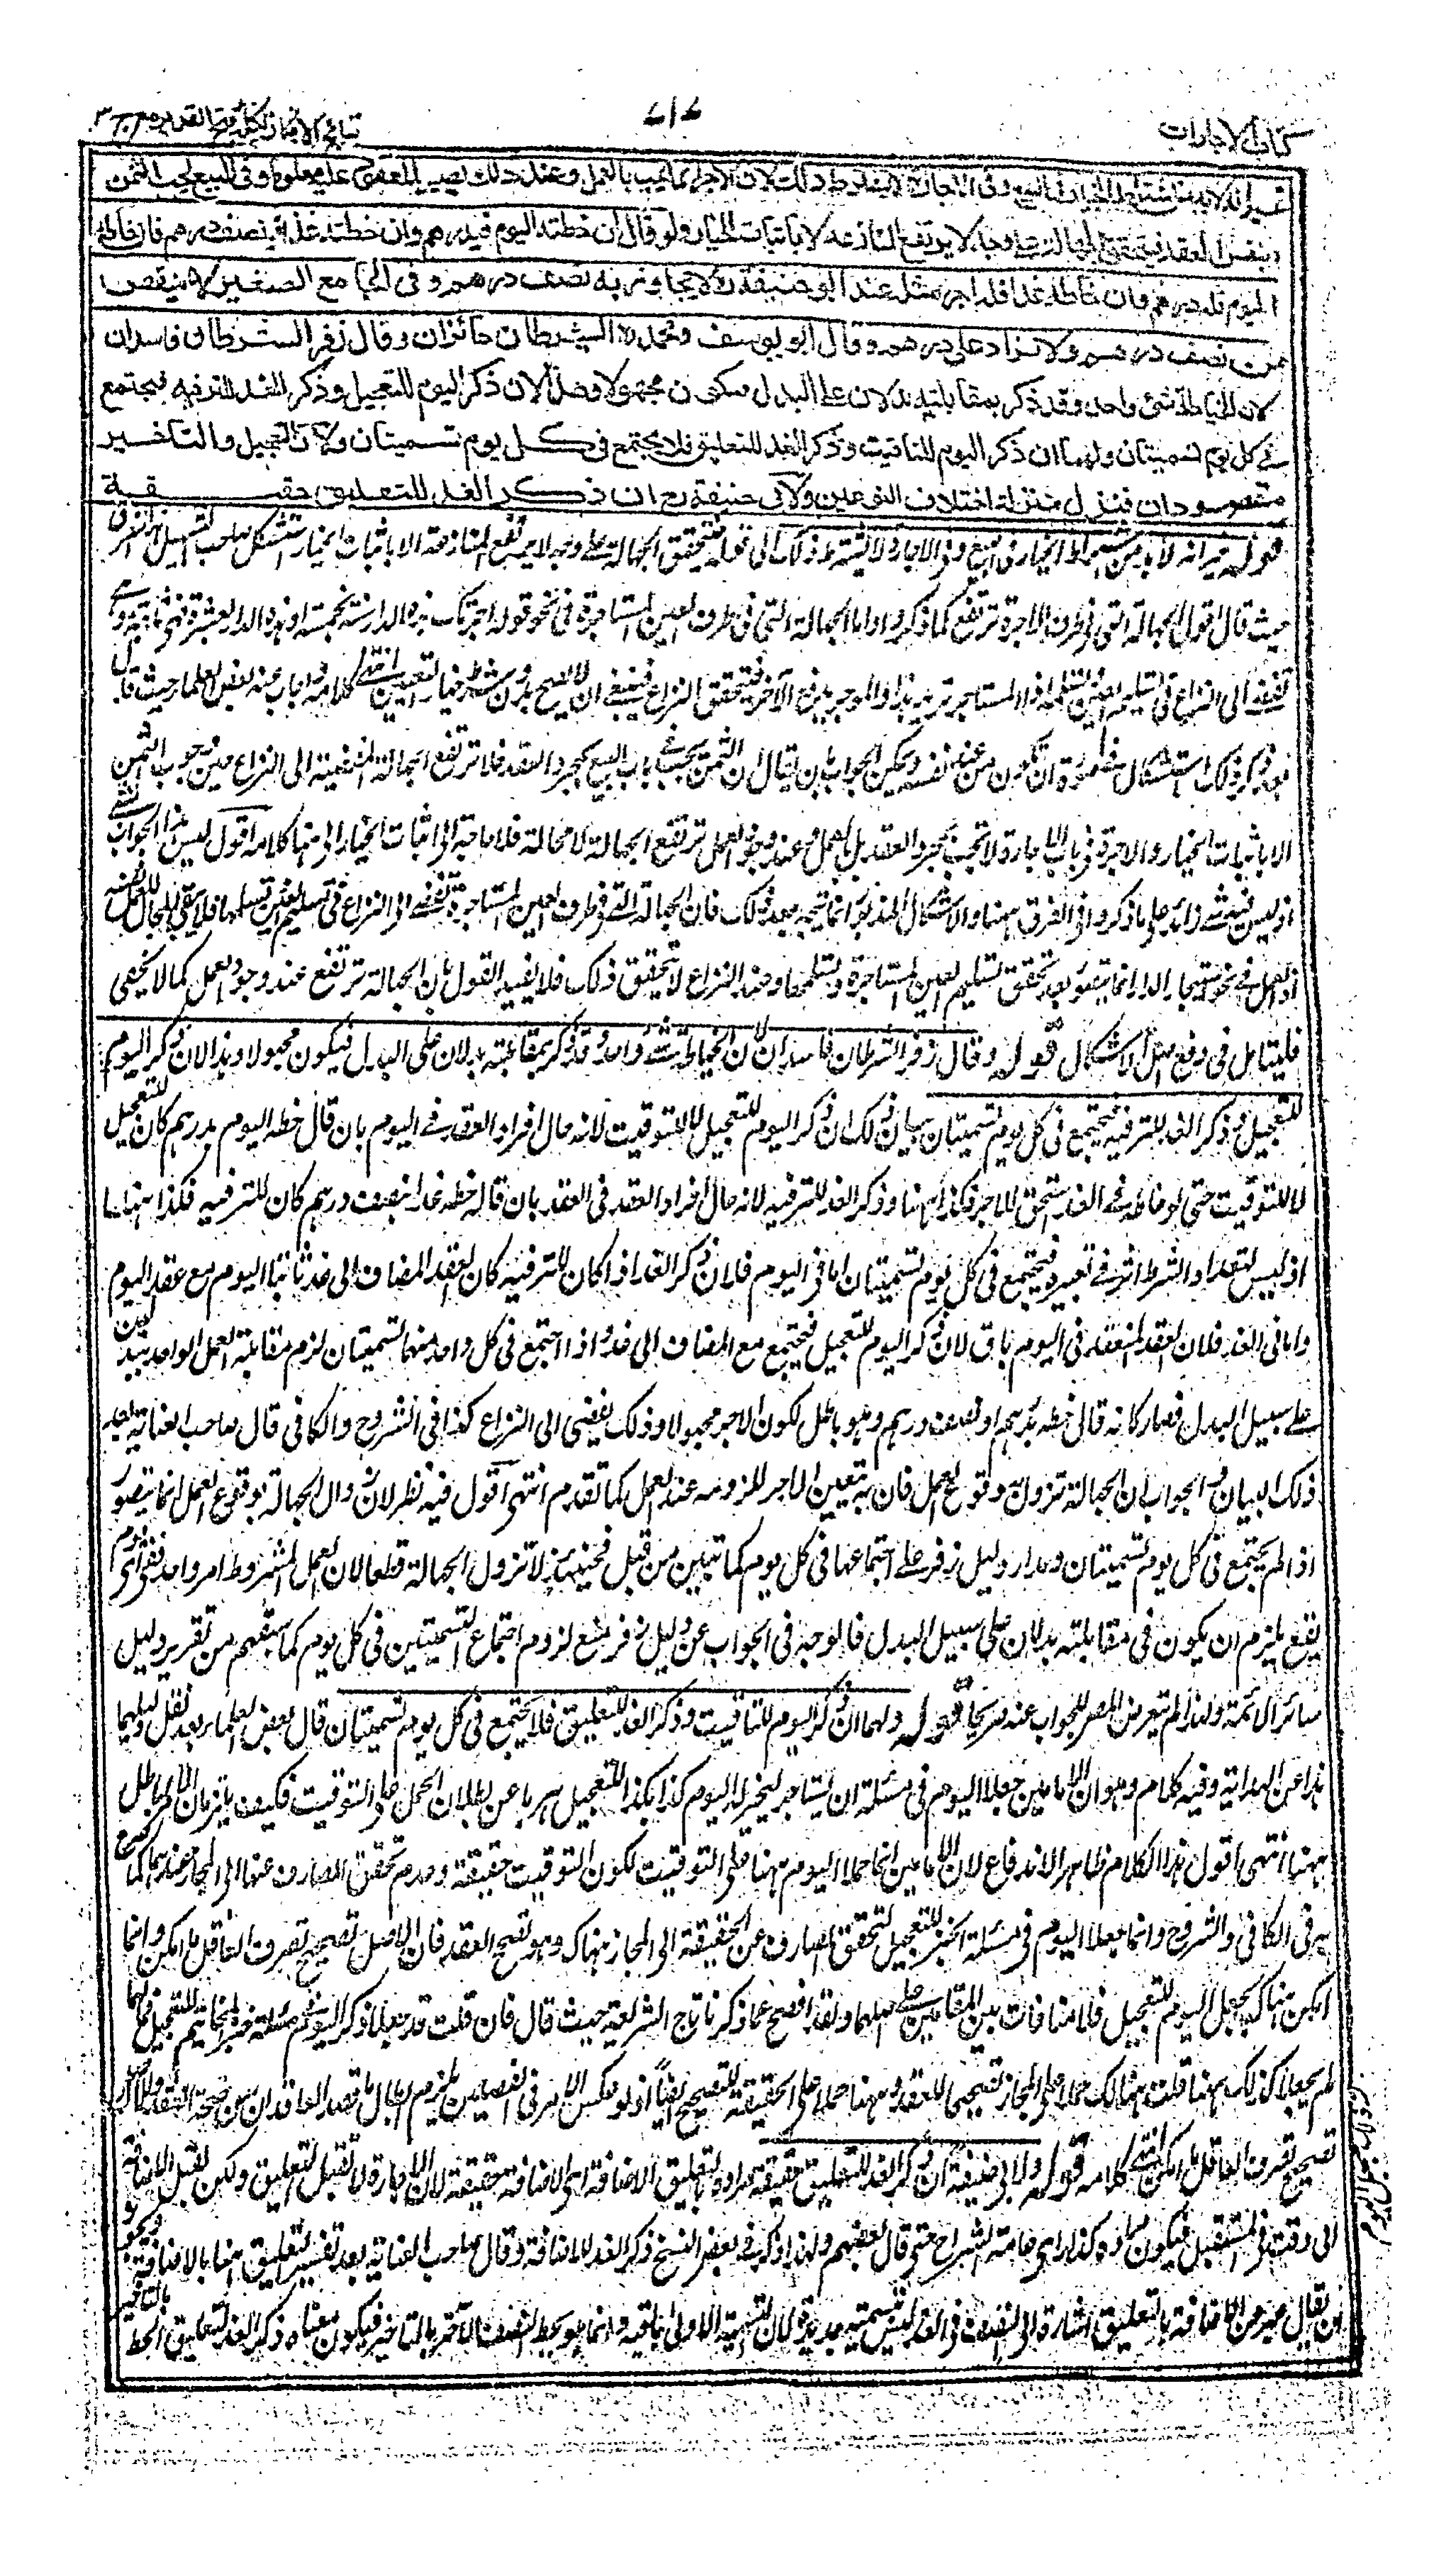 كتاب الاجارات
٧١٧
نتائج الافكار تكملة فتح القدير مع هداية ج ٣
غير انه لابد من اشتراط الخيار في البيع وفي الاجارة لا يشترط ذلك لان الاجر انما يجب بالعمل وعند ذلك يصير المعقود عليه معلوما وفي البيع يجب الثمن
بنفس العقد فيتحقق الجهالة على وجه لا يرتفع المنازعة الا باثبات الخيار ولو قال ان خطته اليوم فبدرهم وان خطته غدا فبنصف درهم فان خاطه
اليوم فله درهم وان خاطه غدا فله اجر مثله عند ابو حنيفة رح لا يجاوز به نصف درهم وفي الجامع الصغير لا ينقص
من نصف درهم ولا يزاد على درهم وقال ابو يوسف ومحمد رح الشرطان جائزان وقال زفر الشرطان فاسدان
لان الخياطة شئ واحد وقد ذكر بمقابلته بدلان على البدل فيكون مجهولا وهذا لان ذكر اليوم للتعجيل وذكر الغد للترفيه فيجتمع
في كل يوم تسميتان ولهما ان ذكر اليوم للتاقيت وذكر الغد للتعليق فلا يجتمع في كل يوم تسميتان ولان التعجيل والتاخير
مقصودان فنزل منزلة اختلاف النوعين ولابي حنيفة رح ان ذكر الغد للتعليق حقيقة
قوله غير انه لابد من اشتراط الخيار في البيع وفي الاجارة لا يشترط ذلك الى قوله فتتحقق الجهالة على وجه لا يرتفع المنازعة الا باثبات الخيار استشكل صاحب التسهيل هذا الفرق
حيث قال اقول الجهالة التي في طرف الاجرة ترتفع كما ذكروا واما الجهالة التي في طرف العين المستاجرة في نحو قوله اجرتك هذه الدار سنة بخمسة او هذه الدار بعشرة فهي ثابتة وهي
تفضي الى النزاع في تسليم العين وتسلمها اذ المستاجر يريد هذا والموجر يدفع الآخر فيتحقق النزاع فينبغي ان لا يصح بدون شرط خيار التعيين انتهى كلامه واجاب عنه بعض العلماء حيث قال
بعد ذكر ذلك استشكال ... ان تكون من عند نفسه ويمكن الجواب بان يقال ان الثمن يجب في باب البيع بمجرد العقد فلا ترتفع الجهالة المفضية الى النزاع حين وجوب الثمن
الا باثبات الخيار والاجرة في باب الاجارة لا تجب بمجرد العقد بل بالعمل وعند وجود العمل ترتفع الجهالة لا محالة فلا حاجة الى اثبات الخيار الى هنا كلامه اقول ليس هذا الجواب بشئ
اذ ليس فيه شئ زائد على ما ذكروا في الفرق ههنا والاشكال المذبور انما يتجه بعد ذلك فان الجهالة التي في طرف العين المستاجرة تفضي الى النزاع في تسليم العين وتسلمها فلا يبقى المجال للعمل
اذ العمل في نحو استيجار الدار انما يتصور بعد تحقق تسليم العين المستاجرة وتسلمها وعند النزاع لا يتحقق ذلك فلا يفيد القول بان الجهالة ترتفع عند وجود العمل كما لا يخفى
فليتامل في دفع مثل الاشكال قوله وقال زفر الشرطان فاسدان لان الخياطة شئ واحد وقد ذكر بمقابلته بدلان على البدل فيكون مجهولا وهذا لان ذكر اليوم
للتعجيل وذكر الغد للترفيه فيجتمع في كل يوم تسميتان بيان ذلك ان ذكر اليوم للتعجيل لا للتوقيت لانه حال افراد العقد في اليوم بان قال خطه اليوم بدرهم كان للتعجيل
لا للتوقيت حتى لو خاطه في الغد استحق الاجر فكذا ههنا وذكر الغد للترفيه لانه حال افراد العقد في الغد بان قال خطه غدا بنصف درهم كان للترفيه فكذا ههنا
اذ ليس لتعداد الشرط اثر في تغييره فيجتمع في كل يوم تسميتان اما في اليوم فلان ذكر الغد اذا كان للترفيه كان العقد المضاف الى غد ثابتا اليوم مع عقد اليوم
واما في الغد فلان العقد المنعقد في اليوم باق لان ذكر اليوم للتعجيل فيجتمع مع المضاف الى غد واذا اجتمع في كل واحد منهما تسميتان لزم مقابلة العمل الواحد ببدلين
على سبيل البدل فصار كانه قال خطه بدرهم او نصف درهم وهو باطل لكون الاجر مجهولا وذلك يفضي الى النزاع كذا في الشروح والكافي قال صاحب العناية بعد
ذلك البيان والجواب ان الجهالة تزول بوقوع العمل فان به يتعين الاجر للزومه عند العمل كما تقدم انتهى اقول فيه نظر لان زوال الجهالة بوقوع العمل انما يتصور
اذا لم يجتمع في كل يوم تسميتان ومدار دليل زفر على اجتماعهما في كل يوم كما تبين من قبل فحينئذ لا تزول الجهالة قطعا لان العمل المشروط امر واحد ففي اي يوم
يقع يلزم ان يكون في مقابلته بدلان على سبيل البدل فالوجه في الجواب عن دليل زفر منع لزوم اجتماع التسميتين في كل يوم كما ستفهم من تقرير دليل
سائر الائمة ولهذا لم يتعرض المصر للجواب عنه صريحا قوله ولهما ان ذكر اليوم للتاقيت وذكر الغد للتعليق فلا يجتمع في كل يوم تسميتان قال بعض العلماء بعد نقل دليلهما
هذا عن الهداية وفيه كلام وهو ان الامامين جعلا اليوم في مسئلة ان يستاجر ليخبز له اليوم كذا بكذا للتعجيل هربا عن بطلان الحمل على التوقيت فكيف يلتزمان الباطل
ههنا انتهى اقول هذا الكلام ظاهر الاندفاع لان الامامين انما حملا اليوم ههنا على التوقيت لكون التوقيت حقيقة وعدم تحقق الصارف عنها الى المجاز عندهما كما صرح
به في الكافي والشروح وانما جعلا اليوم في مسئلة الخبز للتعجيل لتحقق الصارف عن الحقيقة الى المجاز هناك وهو تصحيح العقد فان الاصل تصحيح تصرف العاقل ما امكن وانما
امكن هناك بجعل اليوم للتعجيل فلا منافات بين المقامين على اصلهما ولقد افصح عما ذكرنا تاج الشريعة حيث قال فان قلت قد جعلا ذكر اليوم في مسئلة خبز المخاتيم للتعجيل فما لهما
لم يجعلا كذلك ههنا قلت هنالك حملا على المجاز تصحيحا للعقد وههنا حملا على الحقيقة للتصحيح ايضا اذ لو عكس الامر في الفصلين يلزم ابطال ما قصد العاقدان من صحة العقد والاصل
تصحيح تصرف العاقل ما امكن انتهى كلامه قوله ولابي حنيفة ان ذكر الغد للتعليق حقيقة مراده بالتعليق الاضافة اي الاضافة حقيقة لان الاجارة لا تقبل التعليق ولكن تقبل الاضافة
الى وقت في المستقبل فيكون مراده كذا راى عامة الشراح حتى قال بعضهم ولهذا ذكر في بعض النسخ ذكر الغد للاضافة وقال صاحب العناية بعد تفسير التعليق ههنا بالاضافة ويجوز
ان يقال عبر عن الاضافة بالتعليق اشارة الى النصف في الغد ليس تسمية جديدة لان التسمية الاولى باقية وانما هو بحط النصف الآخر بالتاخير فيكون معناه ذكر الغد لتعليق الحط بالتاخير